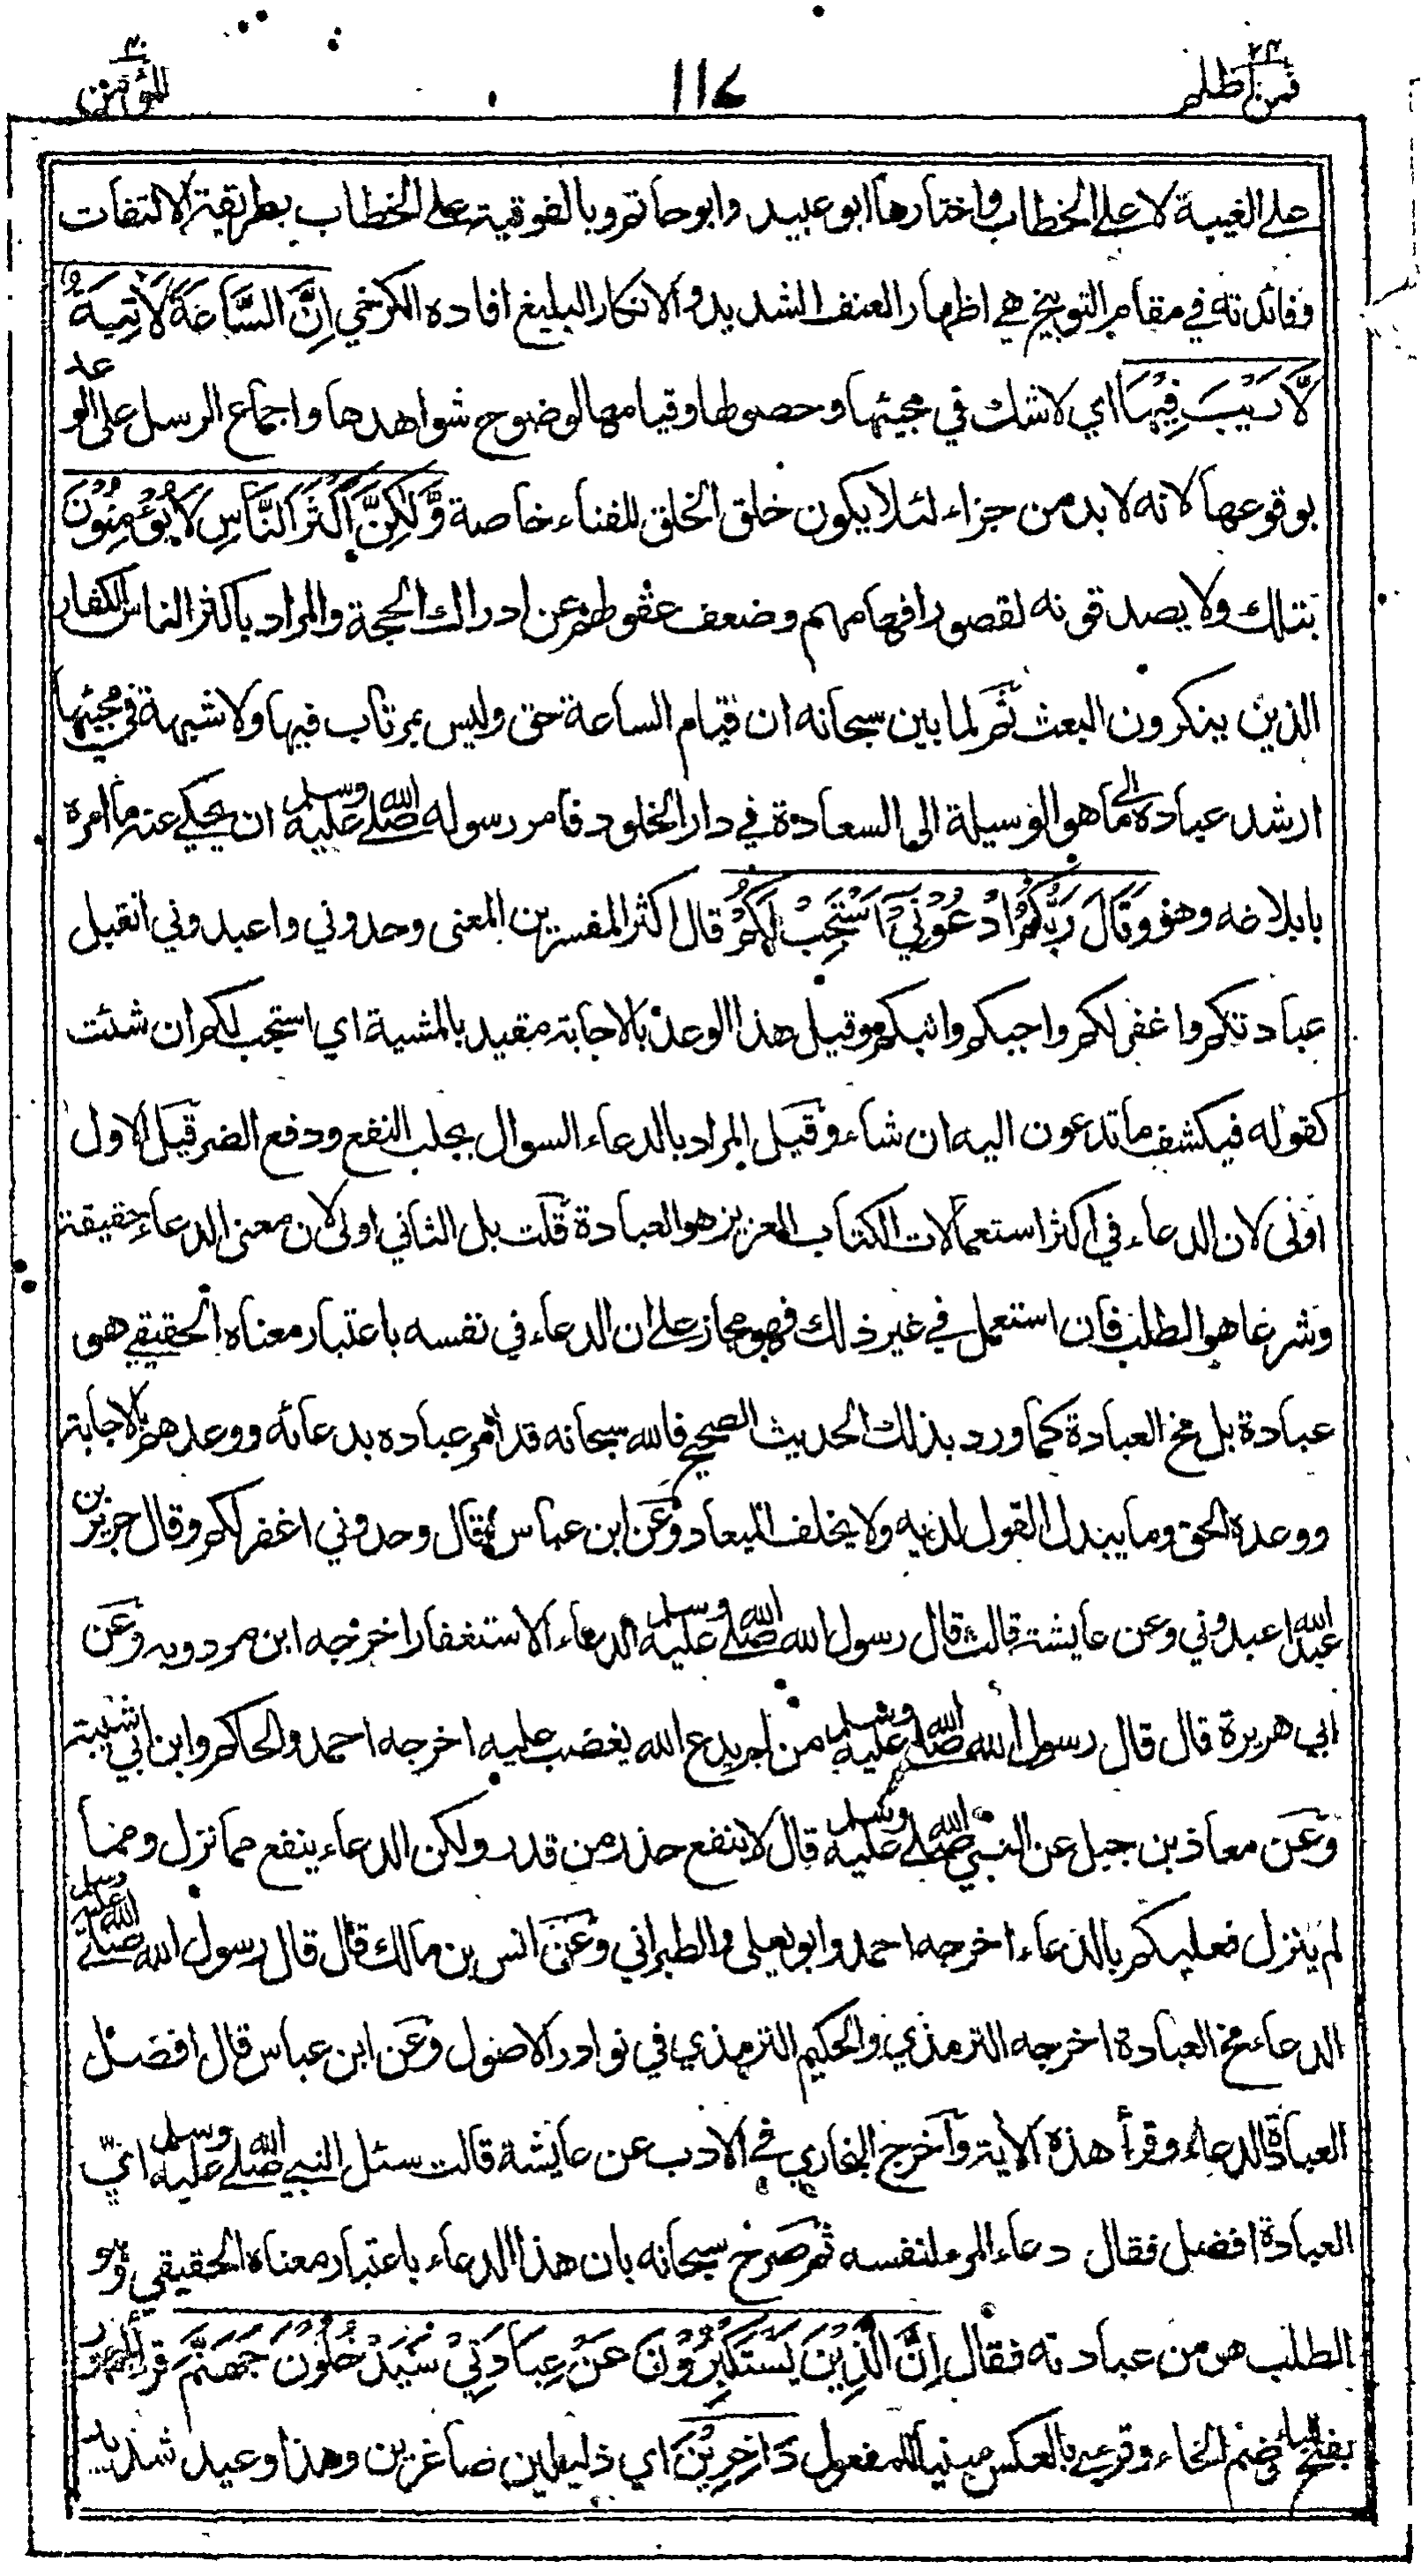 فمن اظلم ٢٤
١١٧
المؤمن ٤٠
على الغيبة لا على الخطاب واختارها ابو عبيد وابو حاتم وبالفوقية على الخطاب بطريقة الالتفات
ففائدته في مقام التوبيخ هي اظهار العنف الشديد والانكار البليغ افاده الكرخي اِنَّ السَّاعَةَ لَاٰتِيَةٌ
لَّا رَيْبَ فِيْهَا اي لا شك في مجيئها وحصولها وقيامها لوضوح شواهدها واجماع الرسل على الوعد
بوقوعها لانه لا بد من جزاء لئلا يكون خلق الخلق للفناء خاصة وَّلٰكِنَّ اَكْثَرَ النَّاسِ لَا يُؤْمِنُوْنَ
بتلك ولا يصدقونه لقصور افهامهم وضعف عقولهم عن ادراك الحجة والمراد باكثر الناس الكفار
الذين ينكرون البعث ثم لما بين سبحانه ان قيام الساعة حق وليس بمرتاب فيها ولا شبهة في مجيئها
ارشد عباده الى ما هو الوسيلة الى السعادة في دار الخلود فامر رسوله صلى الله عليه وسلم ان يحكي عنه ما امره
بابلاغه وهو وَقَالَ رَبُّكُمُ ادْعُوْنِيْ اَسْتَجِبْ لَكُمْ قال اكثر المفسرين المعنى وحدوني واعبدوني اتقبل
عبادتكم واغفر لكم واجبكم واثبكم وقيل هذا الوعد بالاجابة مقيد بالمشية اي استجب لكم ان شئت
كقوله فيكشف ما تدعون اليه ان شاء وقيل المراد بالدعاء السوال بجلب النفع ودفع الضر قيل الاول
اولى لان الدعاء في اكثر استعمالات الكتاب العزيز هو العبادة قلت بل الثاني اولى لان معنى الدعاء حقيقة
وشرعا هو الطلب فان استعمل في غير ذلك فهو مجاز على ان الدعاء في نفسه باعتبار معناه الحقيقي هو
عبادة بل مخ العبادة كما ورد بذلك الحديث الصحيح فالله سبحانه قد امر عباده بدعائه ووعدهم بالاجابة
ووعده الحق وما يبدل القول لديه ولا يخلف الميعاد وعن ابن عباس قال وحدوني اغفر لكم وقال جرير بن
عبد الله اعبدوني وعن عايشة قالت قال رسول الله صلى الله عليه وسلم الدعاء الاستغفار اخرجه ابن مردويه وعن
ابي هريرة قال قال رسول الله صلى الله عليه وسلم من لم يدع الله يغضب عليه اخرجه احمد والحاكم وابن ابي شيبة
وعن معاذ بن جبل عن النبي صلى الله عليه وسلم قال لا ينفع حذر من قدر ولكن الدعاء ينفع مما نزل ومما
لم ينزل فعليكم بالدعاء اخرجه احمد وابو يعلى والطبراني وعن انس بن مالك قال قال رسول الله صلى الله عليه وسلم
الدعاء مخ العبادة اخرجه الترمذي والحكيم الترمذي في نوادر الاصول وعن ابن عباس قال افضل
العبادة الدعاء وقرأ هذه الاية واخرج البخاري في الادب عن عايشة قالت سئل النبي صلى الله عليه وسلم ايّ
العبادة افضل فقال دعاء المرء لنفسه ثم صرح سبحانه بان هذا الدعاء باعتبار معناه الحقيقي وهو
الطلب هو من عبادته فقال اِنَّ الَّذِيْنَ يَسْتَكْبِرُوْنَ عَنْ عِبَادَتِيْ سَيَدْخُلُوْنَ جَهَنَّمَ قرأ الجمهور
بفتح الياء وضم الخاء وقرئ بالعكس مبنيا للمفعول دَاخِرِيْنَ اي ذليلين صاغرين وهذا وعيد شديد